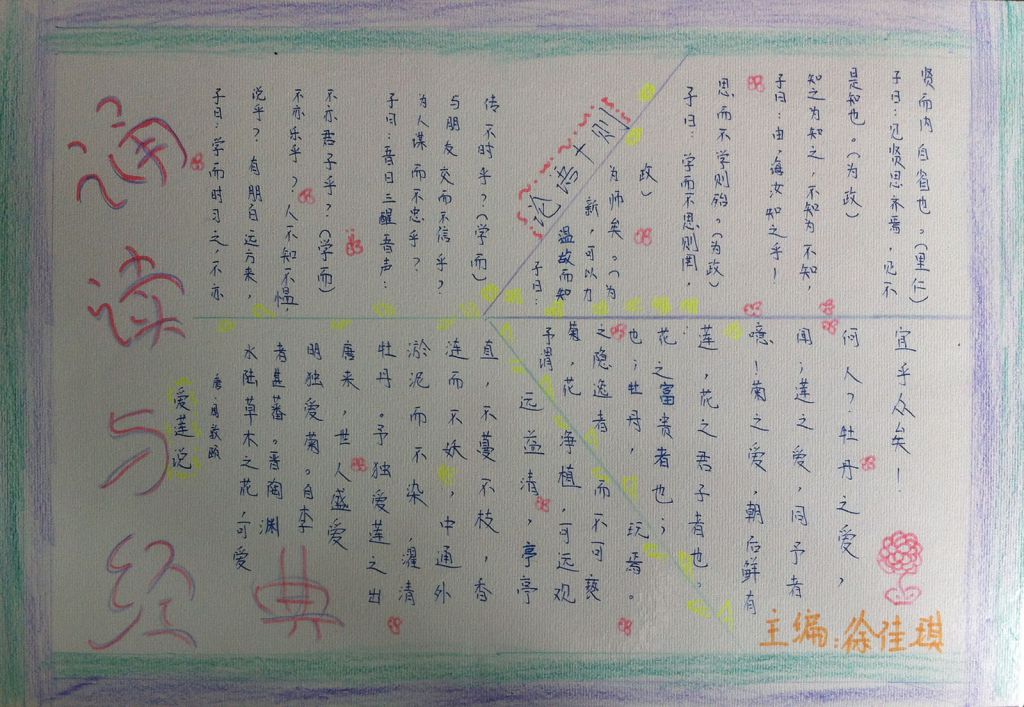 诵读与经典
子曰：学而时习之，不亦
说乎？有朋自远方来，
不亦乐乎？人不知不愠，
不亦君子乎？(学而)
子曰：吾日三醒吾声：
为人谋而不忠乎？
与朋友交而不信乎？
传不时乎？(学而)
论语十则
子曰：
温故而知
新，可以力
为师矣。(为
政)
子曰：学而不思则罔，
思而不学则殆。(为政)
子曰：由，海汝知之乎！
知之为知之，不知为不知，
是知也。(为政)
子曰：见贤思齐焉，见不
贤而内自省也。(里仁)
爱莲说
唐·周敦颐
水陆草木之花，可爱
者甚蕃。晋陶渊
明独爱菊。自李
唐来，世人盛爱
牡丹。予独爱莲之出
淤泥而不染，濯清
涟而不妖，中通外
直，不蔓不枝，香
远益清，亭亭
净植，可远观
而不可亵
玩焉。
予谓
菊，花
之隐逸者
也；牡丹，
花之富贵者也；
莲，花之君子者也。
噫！菊之爱，朝后鲜有
闻；莲之爱，同予者
何人？牡丹之爱，
宜乎众矣！
主编:徐佳琪